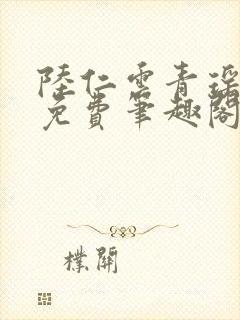 陸仁雲青瑶
免費筆趣閣
樸開